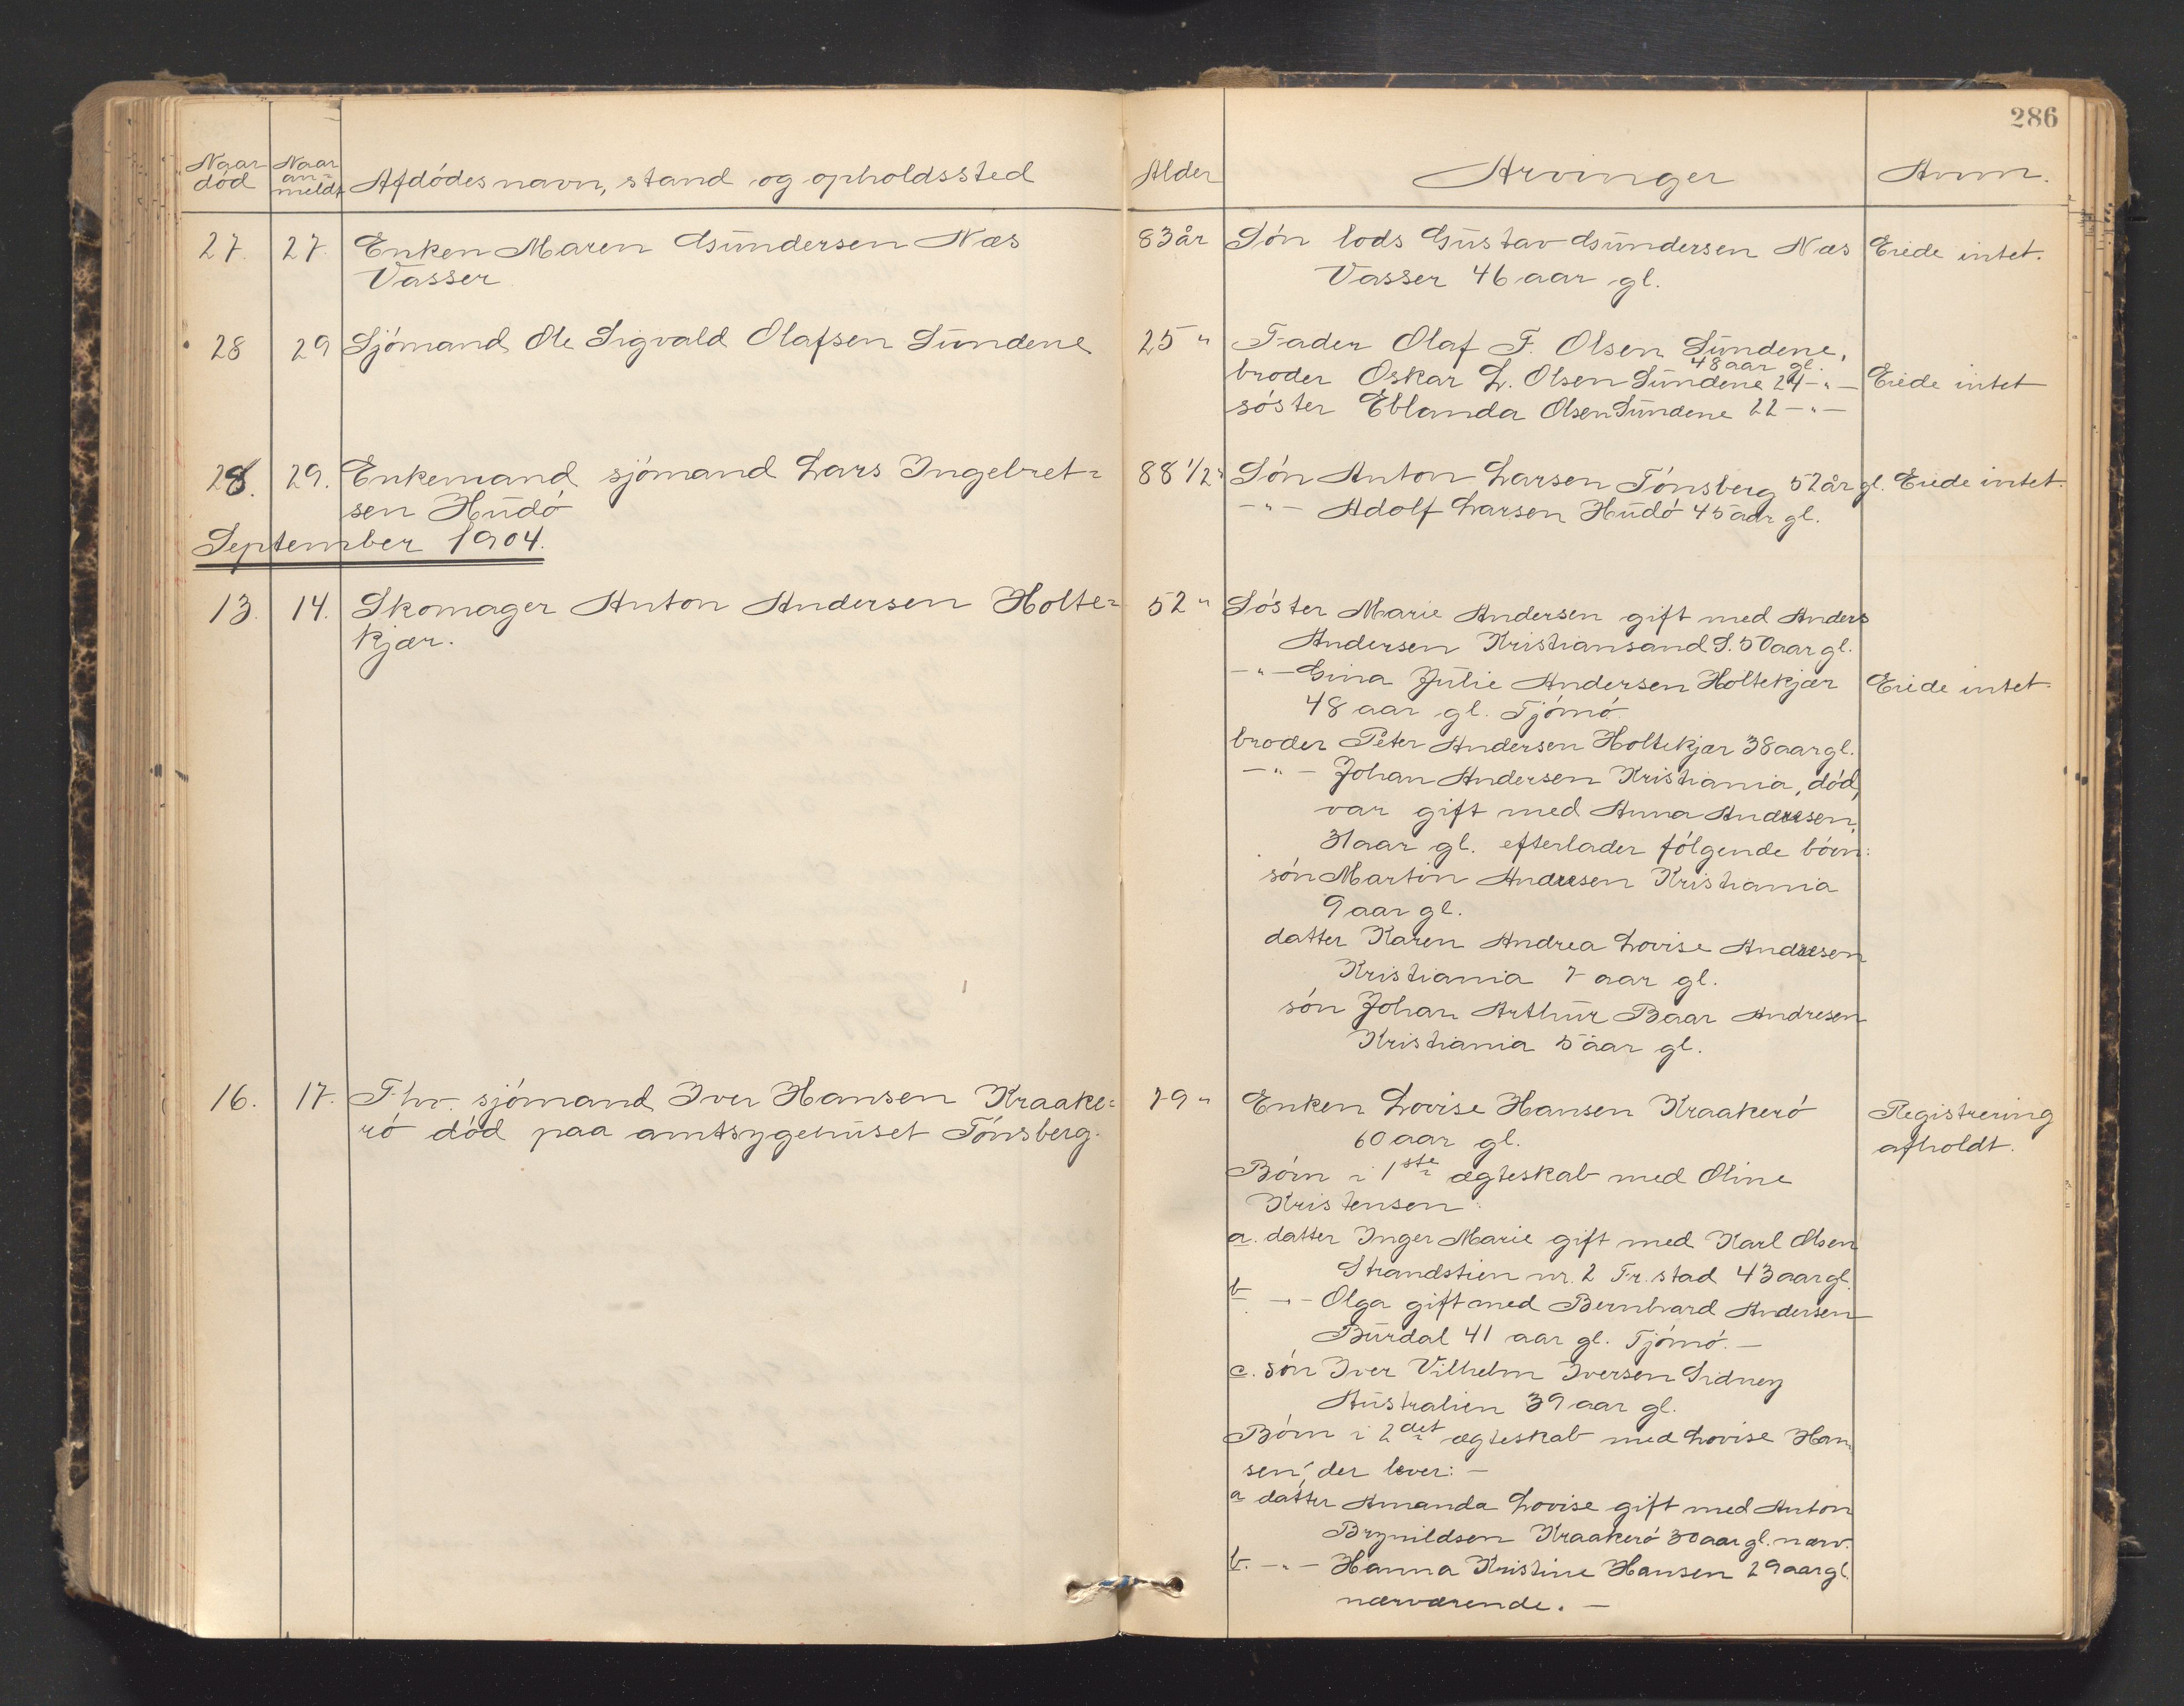 286
Naar død
Naar an-
meldt
Afdødes navn, stand og opholdssted
Alder
Arvinger
Anm.
27. 27. Enken Maren Gundersen Næs
Vasser
83 år
Søn lods Gustav Gundersen Næs
Vasser 46 aar gl.
Eiede intet.
28 29 Sjømand Ole Sigvald Olafsen Sundene
25 "
Fader Olaf F. Olsen Sundene,
48 aar gl.
broder Oskar L. Olsen Sundene 24 -"-
søster Eblanda Olsen Sundene 22 -"-
Eiede intet
28. 29. Enkemand sjømand Lars Ingebret=
sen Hudø
88 1/2 "
Søn Anton Larsen Tønsberg 52 år gl.
-"- Adolf Larsen Hudø 45 aar gl.
Eiede intet.
September 1904.
13. 14. Skomager Anton Andersen Holte=
kjær.
52 "
Søster Marie Andersen gift med Anders
Andersen Kristiansand S. 50 aar gl.
-"- Gina Julie Andersen Holtekjær
48 aar gl. Tjømø.
Eiede intet.
broder Peter Andersen Holtekjær 38 aar gl.
-"- Johan Andersen Kristiania, død,
var gift med Anna Andresen,
31 aar gl. efterlader følgende børn:
søn Martin Andresen Kristiania
9 aar gl.
datter Karen Andrea Lovise Andresen
Kristiania 7 aar gl.
søn Johan Arthur Baar Andresen
Kristiania 5 aar gl.
16. 17. Fhv. sjømand Iver Hansen Kraake=
rø død paa amtsygehuset Tønsberg.
79 "
Enken Lovise Hansen Kraakerø
60 aar gl.
Registrering
afholdt.
Børn i 1ste ægteskab med Oline
Kristensen:
a. datter Inger Marie gift med Karl Olsen
Strandstien nr. 2 Fr.stad 43 aar gl.
b -"- Olga gift med Bernhard Andersen
Burdal 41 aar gl. Tjømø. -
c. søn Iver Vilhelm Iversen Sidney
Australien 39 aar gl.
Børn i 2det ægteskab med Lovise Han
sen, der lever: -
a datter Amanda Lovise gift med Anton
Brynildsen Kraakerø 30 aar gl. nærv.
b. -"- Hanna Kristine Hansen 29 aar gl
nærværende. -